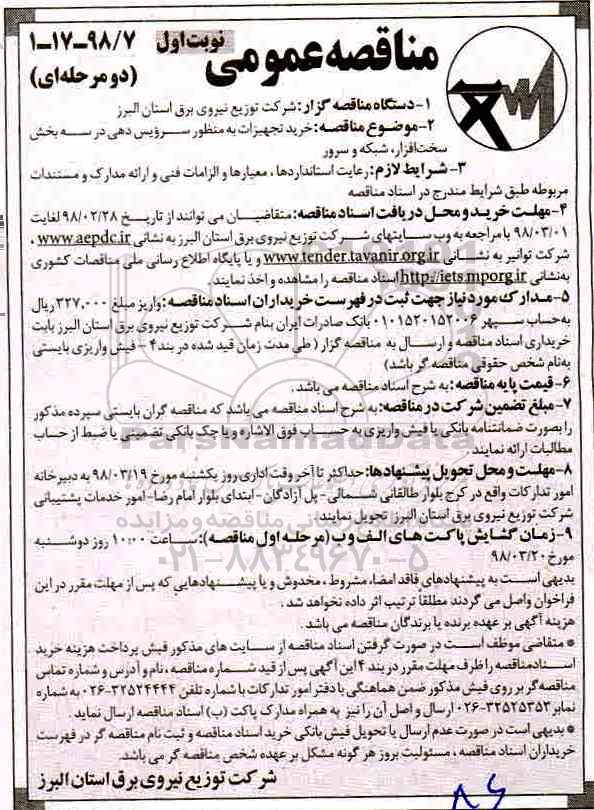 مناقصه عمومی
نوبت اول
۱-۱۷-۹۸/۷
(دو مرحله‌ای)
۱- دستگاه مناقصه گزار: شرکت توزیع نیروی برق استان البرز
۲- موضوع مناقصه: خرید تجهیزات به منظور سرویس دهی در سه بخش
سخت‌افزار، شبکه و سرور
۳- شرایط لازم: رعایت استانداردها، معیارها و الزامات فنی و ارائه مدارک و مستندات
مربوطه طبق شرایط مندرج در اسناد مناقصه
۴- مهلت خرید و محل دریافت اسناد مناقصه: متقاضیان می توانند از تاریخ ۹۸/۰۲/۲۸ لغایت
۹۸/۰۳/۰۱ با مراجعه به وب سایتهای شرکت توزیع نیروی برق استان البرز به نشانی www.aepdc.ir ،
شرکت توانیر به نشانی www.tender.tavanir.org.ir و یا پایگاه اطلاع رسانی ملی مناقصات کشوری
به‌نشانی http://iets.mporg.ir اسناد مناقصه را مشاهده و اخذ نمایند.
۵- مدارک مورد نیاز جهت ثبت در فهرست خریداران اسناد مناقصه: واریز مبلغ ۳۲۷,۰۰۰ ریال
به‌حساب سپهر ۰۱۰۱۵۲۰۱۵۲۰۰۶ بانک صادرات ایران بنام شرکت توزیع نیروی برق استان البرز بابت
خریداری اسناد مناقصه و ارسال به مناقصه گزار (طی مدت زمان قید شده در بند ۴ - فیش واریزی بایستی
به‌نام شخص حقوقی مناقصه گر باشد)
۶- قیمت پایه مناقصه: به شرح اسناد مناقصه می باشد.
۷- مبلغ تضمین شرکت در مناقصه: به شرح اسناد مناقصه می باشد که مناقصه گران بایستی سپرده مذکور
را بصورت ضمانتنامه بانکی یا فیش واریزی به حساب فوق الاشاره و یا چک بانکی تضمینی یا ضبط از حساب
مطالبات ارائه نمایند.
۸- مهلت و محل تحویل پیشنهادها: حداکثر تا آخر وقت اداری روز یکشنبه مورخ ۹۸/۰۳/۱۹ به دبیرخانه
امور تدارکات واقع در کرج بلوار طالقانی شمالی- پل آزادگان- ابتدای بلوار امام رضا- امور خدمات پشتیبانی
شرکت توزیع نیروی برق استان البرز؛ تحویل نمایند.
۹- زمان گشایش پاکت های الف و ب (مرحله اول مناقصه): ساعت ۱۰:۰۰ روز دوشنبه
مورخ ۹۸/۰۳/۲۰
بدیهی است به پیشنهادهای فاقد امضا، مشروط، مخدوش و یا پیشنهادهایی که پس از مهلت مقرر در این
فراخوان واصل می گردند مطلقاً ترتیب اثر داده نخواهد شد.
هزینه آگهی بر عهده برنده یا برندگان مناقصه می باشد.
* متقاضی موظف است در صورت گرفتن اسناد مناقصه از سایت های مذکور فیش پرداخت هزینه خرید
اسناد مناقصه را ظرف مهلت مقرر در بند ۴ این آگهی پس از قید شماره مناقصه، نام و آدرس و شماره تماس
مناقصه‌گر بر روی فیش مذکور ضمن هماهنگی با دفتر امور تدارکات با شماره تلفن ۳۲۵۲۴۴۴۴-۰۲۶ به شماره
نمابر ۳۲۵۲۵۳۵۲-۰۲۶ ارسال و اصل آن را نیز به همراه مدارک پاکت (ب) اسناد مناقصه ارسال نماید.
* بدیهی است در صورت عدم ارسال یا تحویل فیش بانکی خرید اسناد مناقصه و ثبت نام مناقصه گر در فهرست
خریداران اسناد مناقصه، مسئولیت بروز هر گونه مشکل بر عهده شخص مناقصه گر می باشد.
شرکت توزیع نیروی برق استان البرز
ParsNamadData
۰۲۱-۸۸۳۴۹۶۷۰-۵